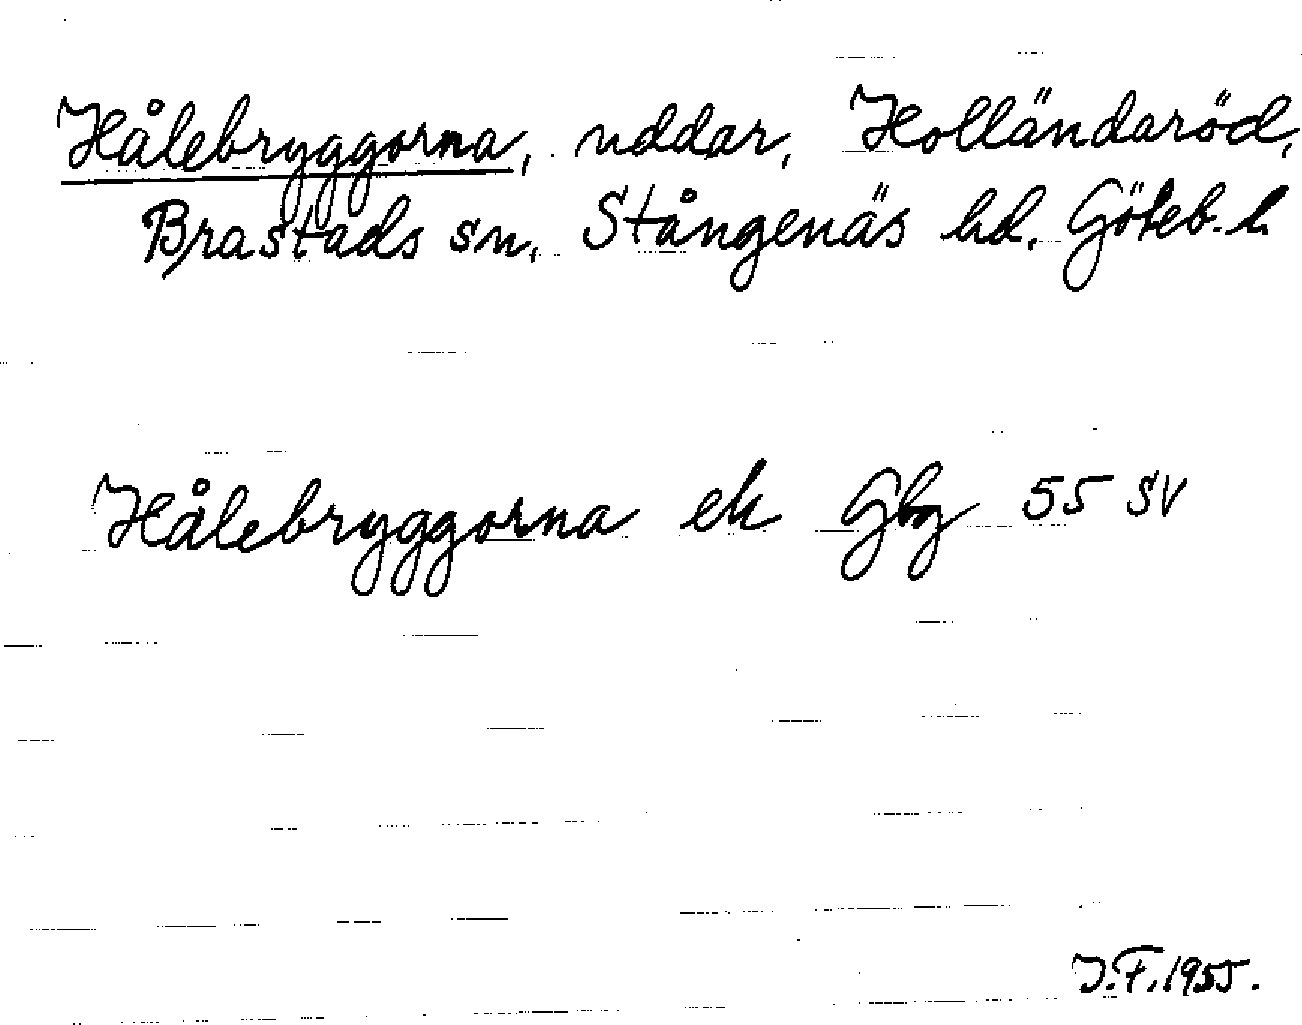 Hålebryggorna, uddar, Holländaröd,
Brastads sn, Stångenäs hd. Göteb. l.
Hålebryggorna ek Gbg 55 SV
J.F. 1955.